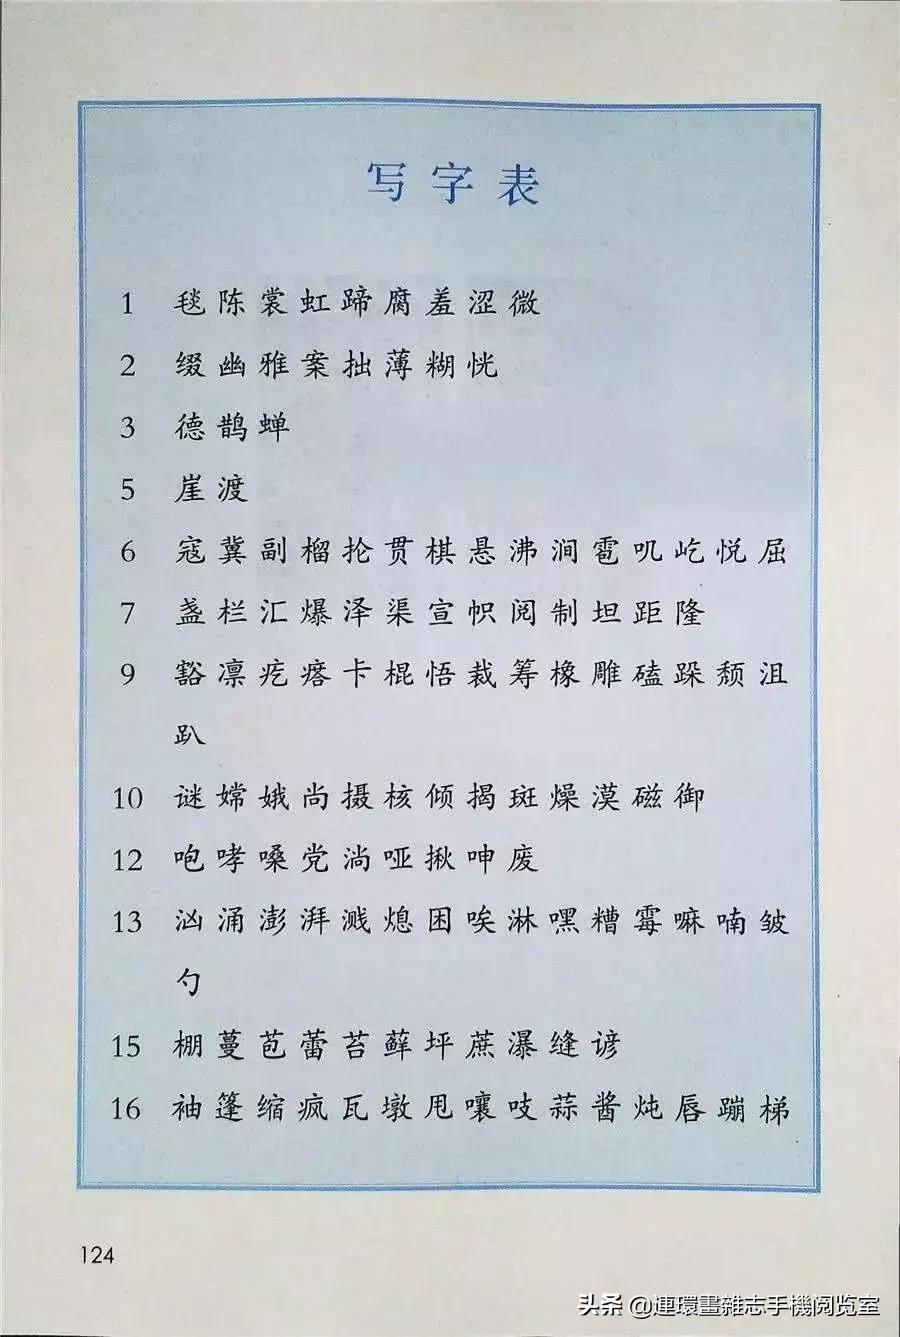 写字表
1 毯陈裳虹蹄腐羞涩微
2 缀幽雅案拙薄糊恍
3 德鹊蝉
5 崖渡
6 寇冀副榴抡贯棋悬沸涧雹叽屹悦屈
7 盏栏汇爆泽渠宣帜阅制坦距隆
9 豁凛疙瘩卡棍悟裁筹橡雕磕跺颓沮
趴
10 谜嫦娥尚摄核倾揭斑燥漠磁御
12 咆哮嗓党淌哑揪呻废
13 汹涌澎湃溅熄困唉淋嘿糟霉嘛喃皱
勺
15 棚蔓苞蕾苔藓坪蔗瀑缝谚
16 袖篷缩疯瓦墩甩嚷吱蒜酱炖唇蹦梯
124
头条 @連環畫雜志手機阅览室